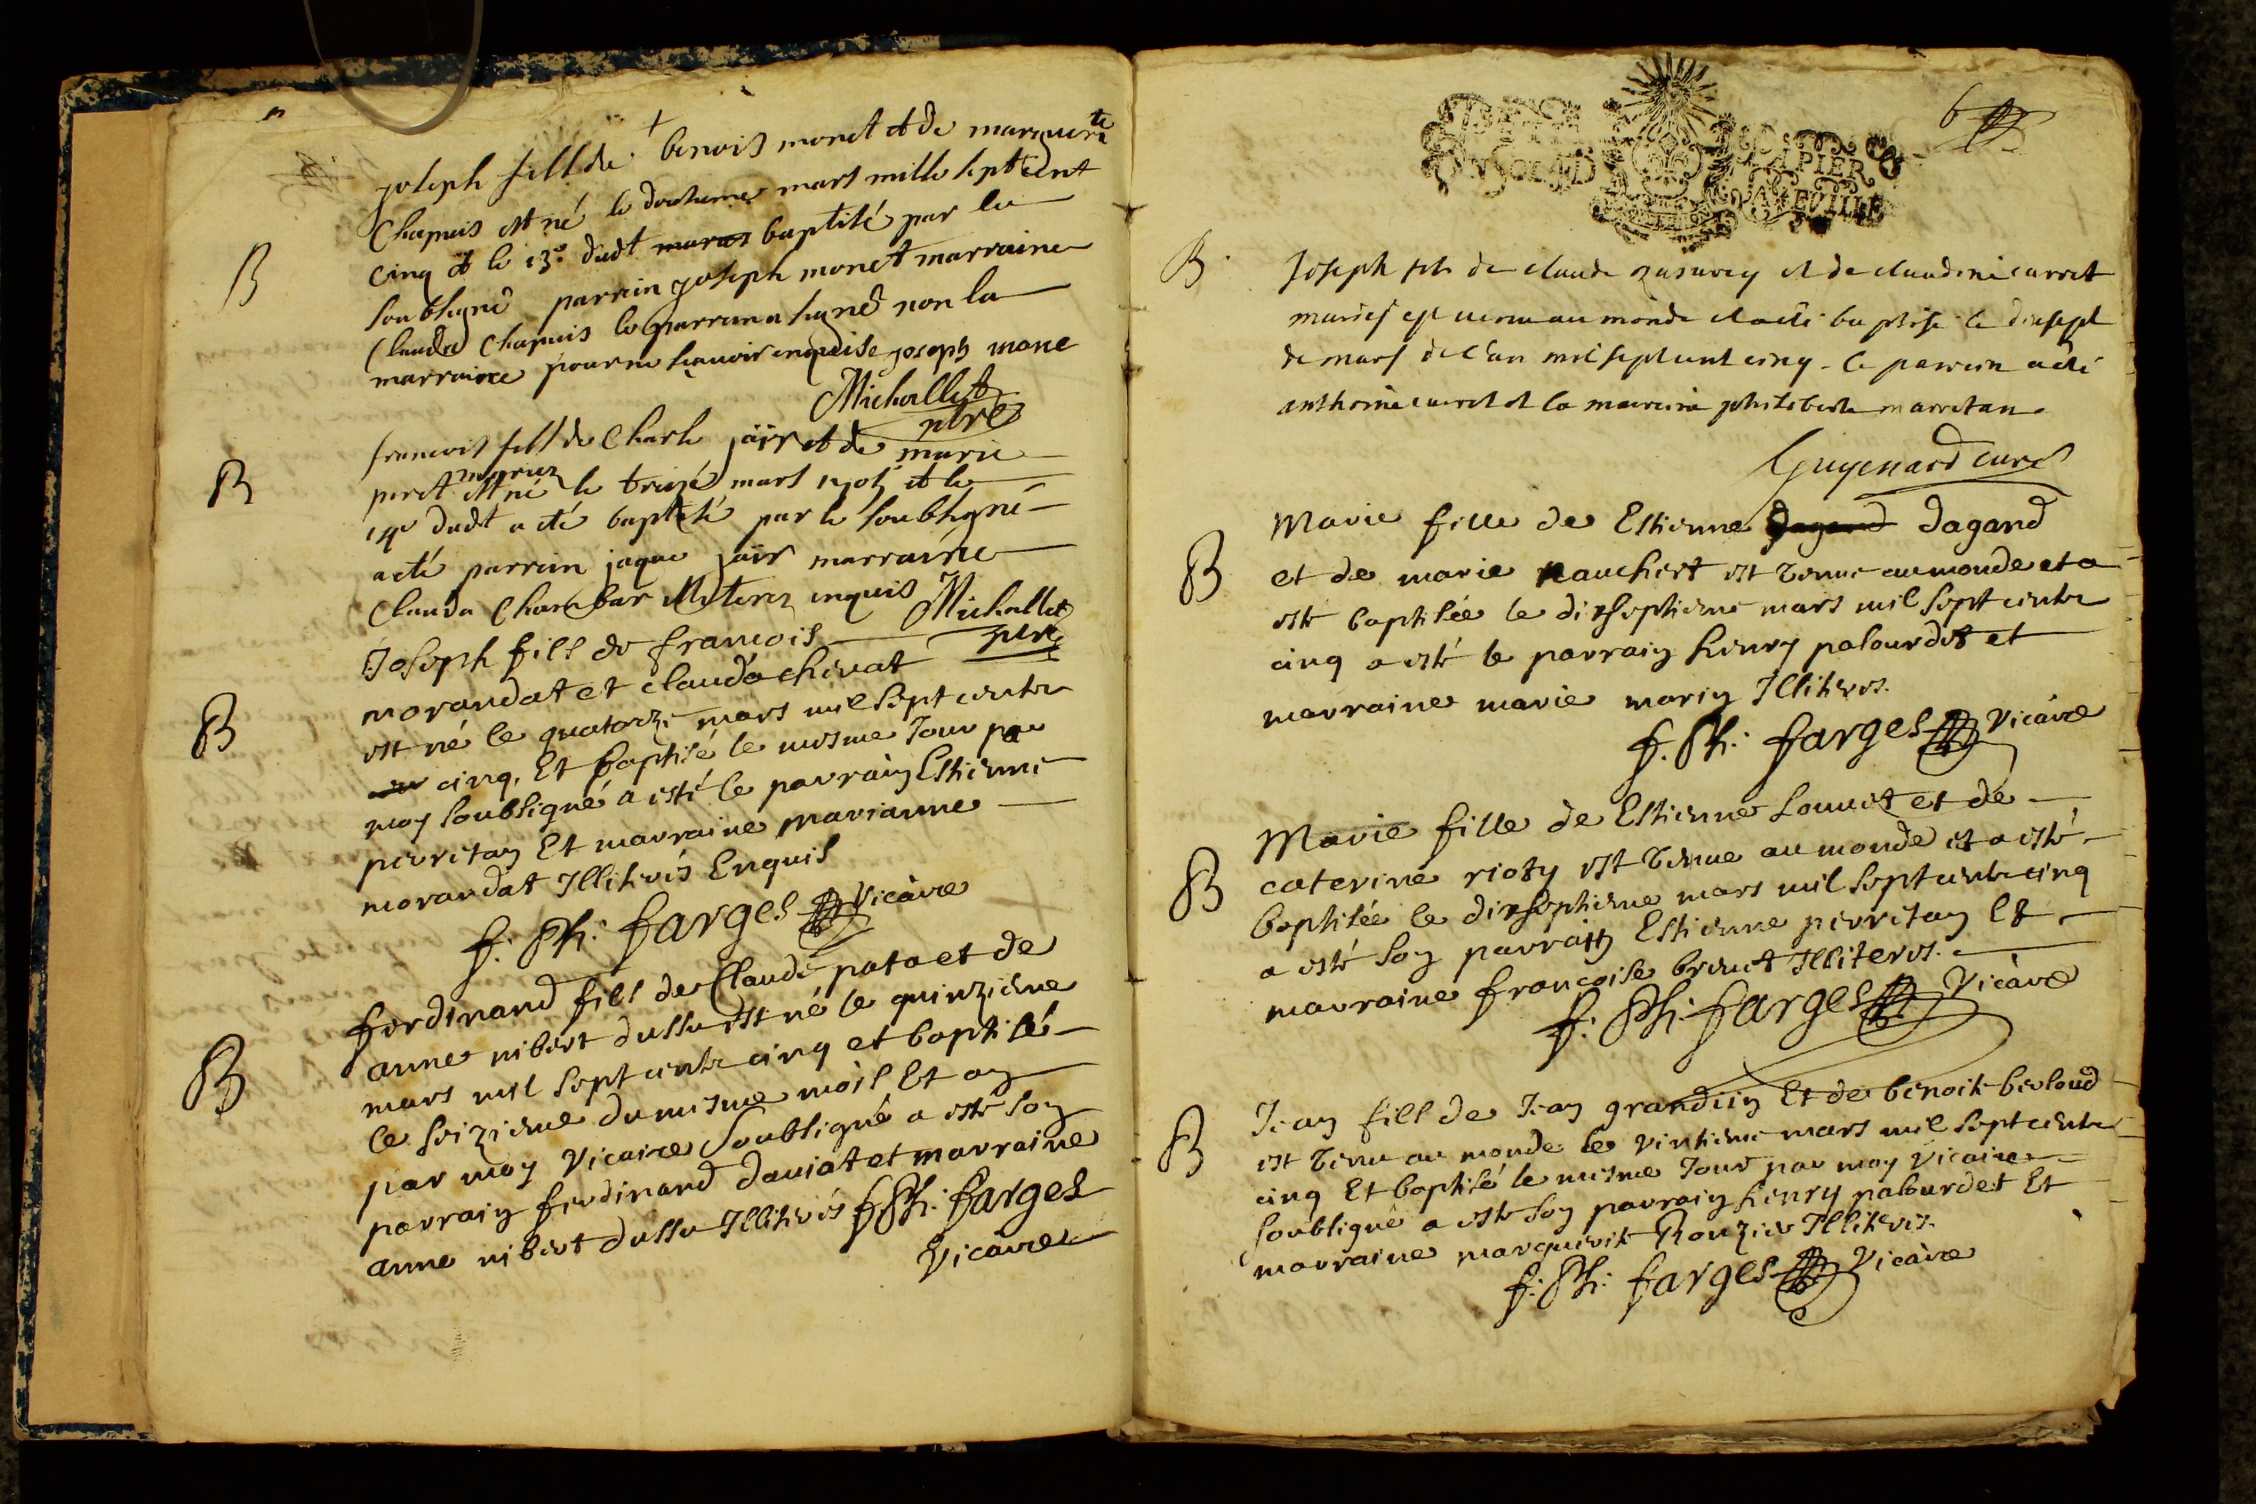 B
joseph fils de benois monet et de marguerite
Chapuis est né le douzieme mars mille sept cent
cinq et le 13e dudt mars baptisé par le
soubsigné parrin joseph monet marraine
Clauda Chapuis le parrin a signé non la
marraine pour ne sçauoir enquise joseph mone
Michallet
ptre
B
francois fils de Charle jaïr et de marie
peret mariez est né le treize mars 1705 et le
14e dudt a eté baptisé par le soubsigné
a eté parrin jaque jaïr marraine
Clauda Chambar illiterez enquis Michallet
ptre
B
Joseph fils de francois
morandat et clauda chevat
est né le quatorze mars mil sept cents
cinq, Et baptisé le mesme Jour par
moy soubsigné a esté le parrain Estienne
perretan Et marraine marianne
morandat Illiterés Enquis
f. Ph: farges Vicaire
B
ferdinand fils de Claude pata et de
anne nibert dussu est né le quinzieme
mars mil sept cents cinq et baptisé
le seizieme du mesme mois Et an
par moy Vicaire soubsigné a esté son
parrain ferdinand daviat et marraine
anne nibert dussu Illiterés f Ph: farges
Vicaire
6
PAPIER
B
Joseph fils de claude et de claudine curret
mariés est venu au monde et a été baptisé le dixsept
de mars de l'an mil sept cent cinq. le parrein a été
anthoine curret et la marreine philiberte marretan.
Guyenard curé
B
Marie fille de Estienne dagand dagand
et de marie rauchert est venue au monde et a
esté baptisée le dixseptieme mars mil sept cents
cinq a esté le parrain henry palourdet et
marraine marie marin Illiteres.
f. Ph: farges Vicaire
B
Marie fille de Estienne Louuet et de
caterine rioty est venue au monde et a esté
baptisée le dixseptieme mars mil sept cents cinq
a esté son parrain Estienne perretan Et
marraine francoise breuet Illiteres.
f. Ph: farges Vicaire
B
Jean fils de Jean grandiin Et de benoite berloud
est venu au monde le vintieme mars mil sept cents
cinq Et baptisé le mesme Jour par moy Vicaire
soubsigné a esté son parrain henry palourdet Et
marraine marguerite Ronzier Illiteres.
f. Ph: farges Vicaire